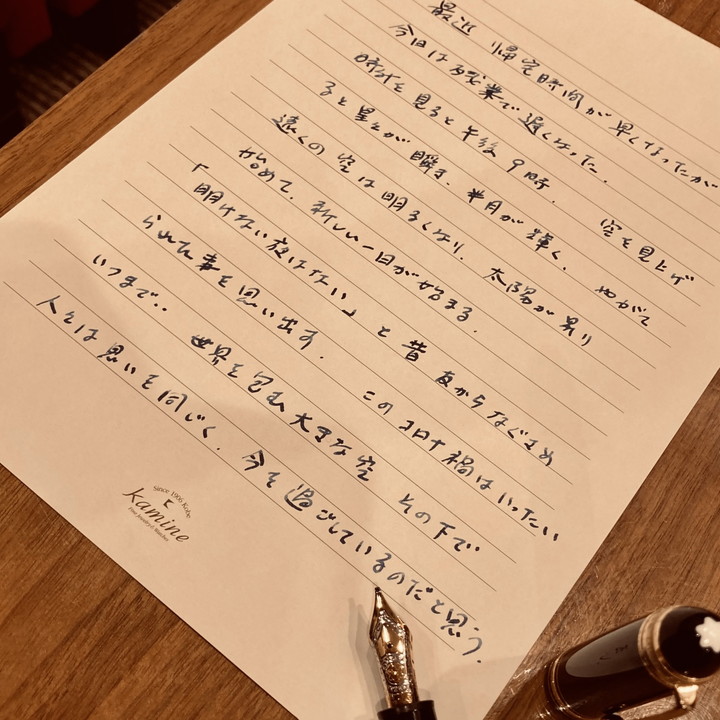 最近 帰宅時間が早くなったが
今日は残業で遅くなった。
時計を見ると午後9時。 空を見上げ
ると星々が瞬き、半月が輝く。 やがて
遠くの空は明るくなり、太陽が昇り
始めて、新しい一日が始まる。
「明けない夜はない」と昔 友からなぐさめ
られた事を思い出す。 このコロナ禍はいったい
いつまで・・ 世界を包む大きな空 その下で
人々は思いを同じく、今を過ごしているのだと思う。
Since 1906 Kobe
kamine
Fine Jewelry & Watches